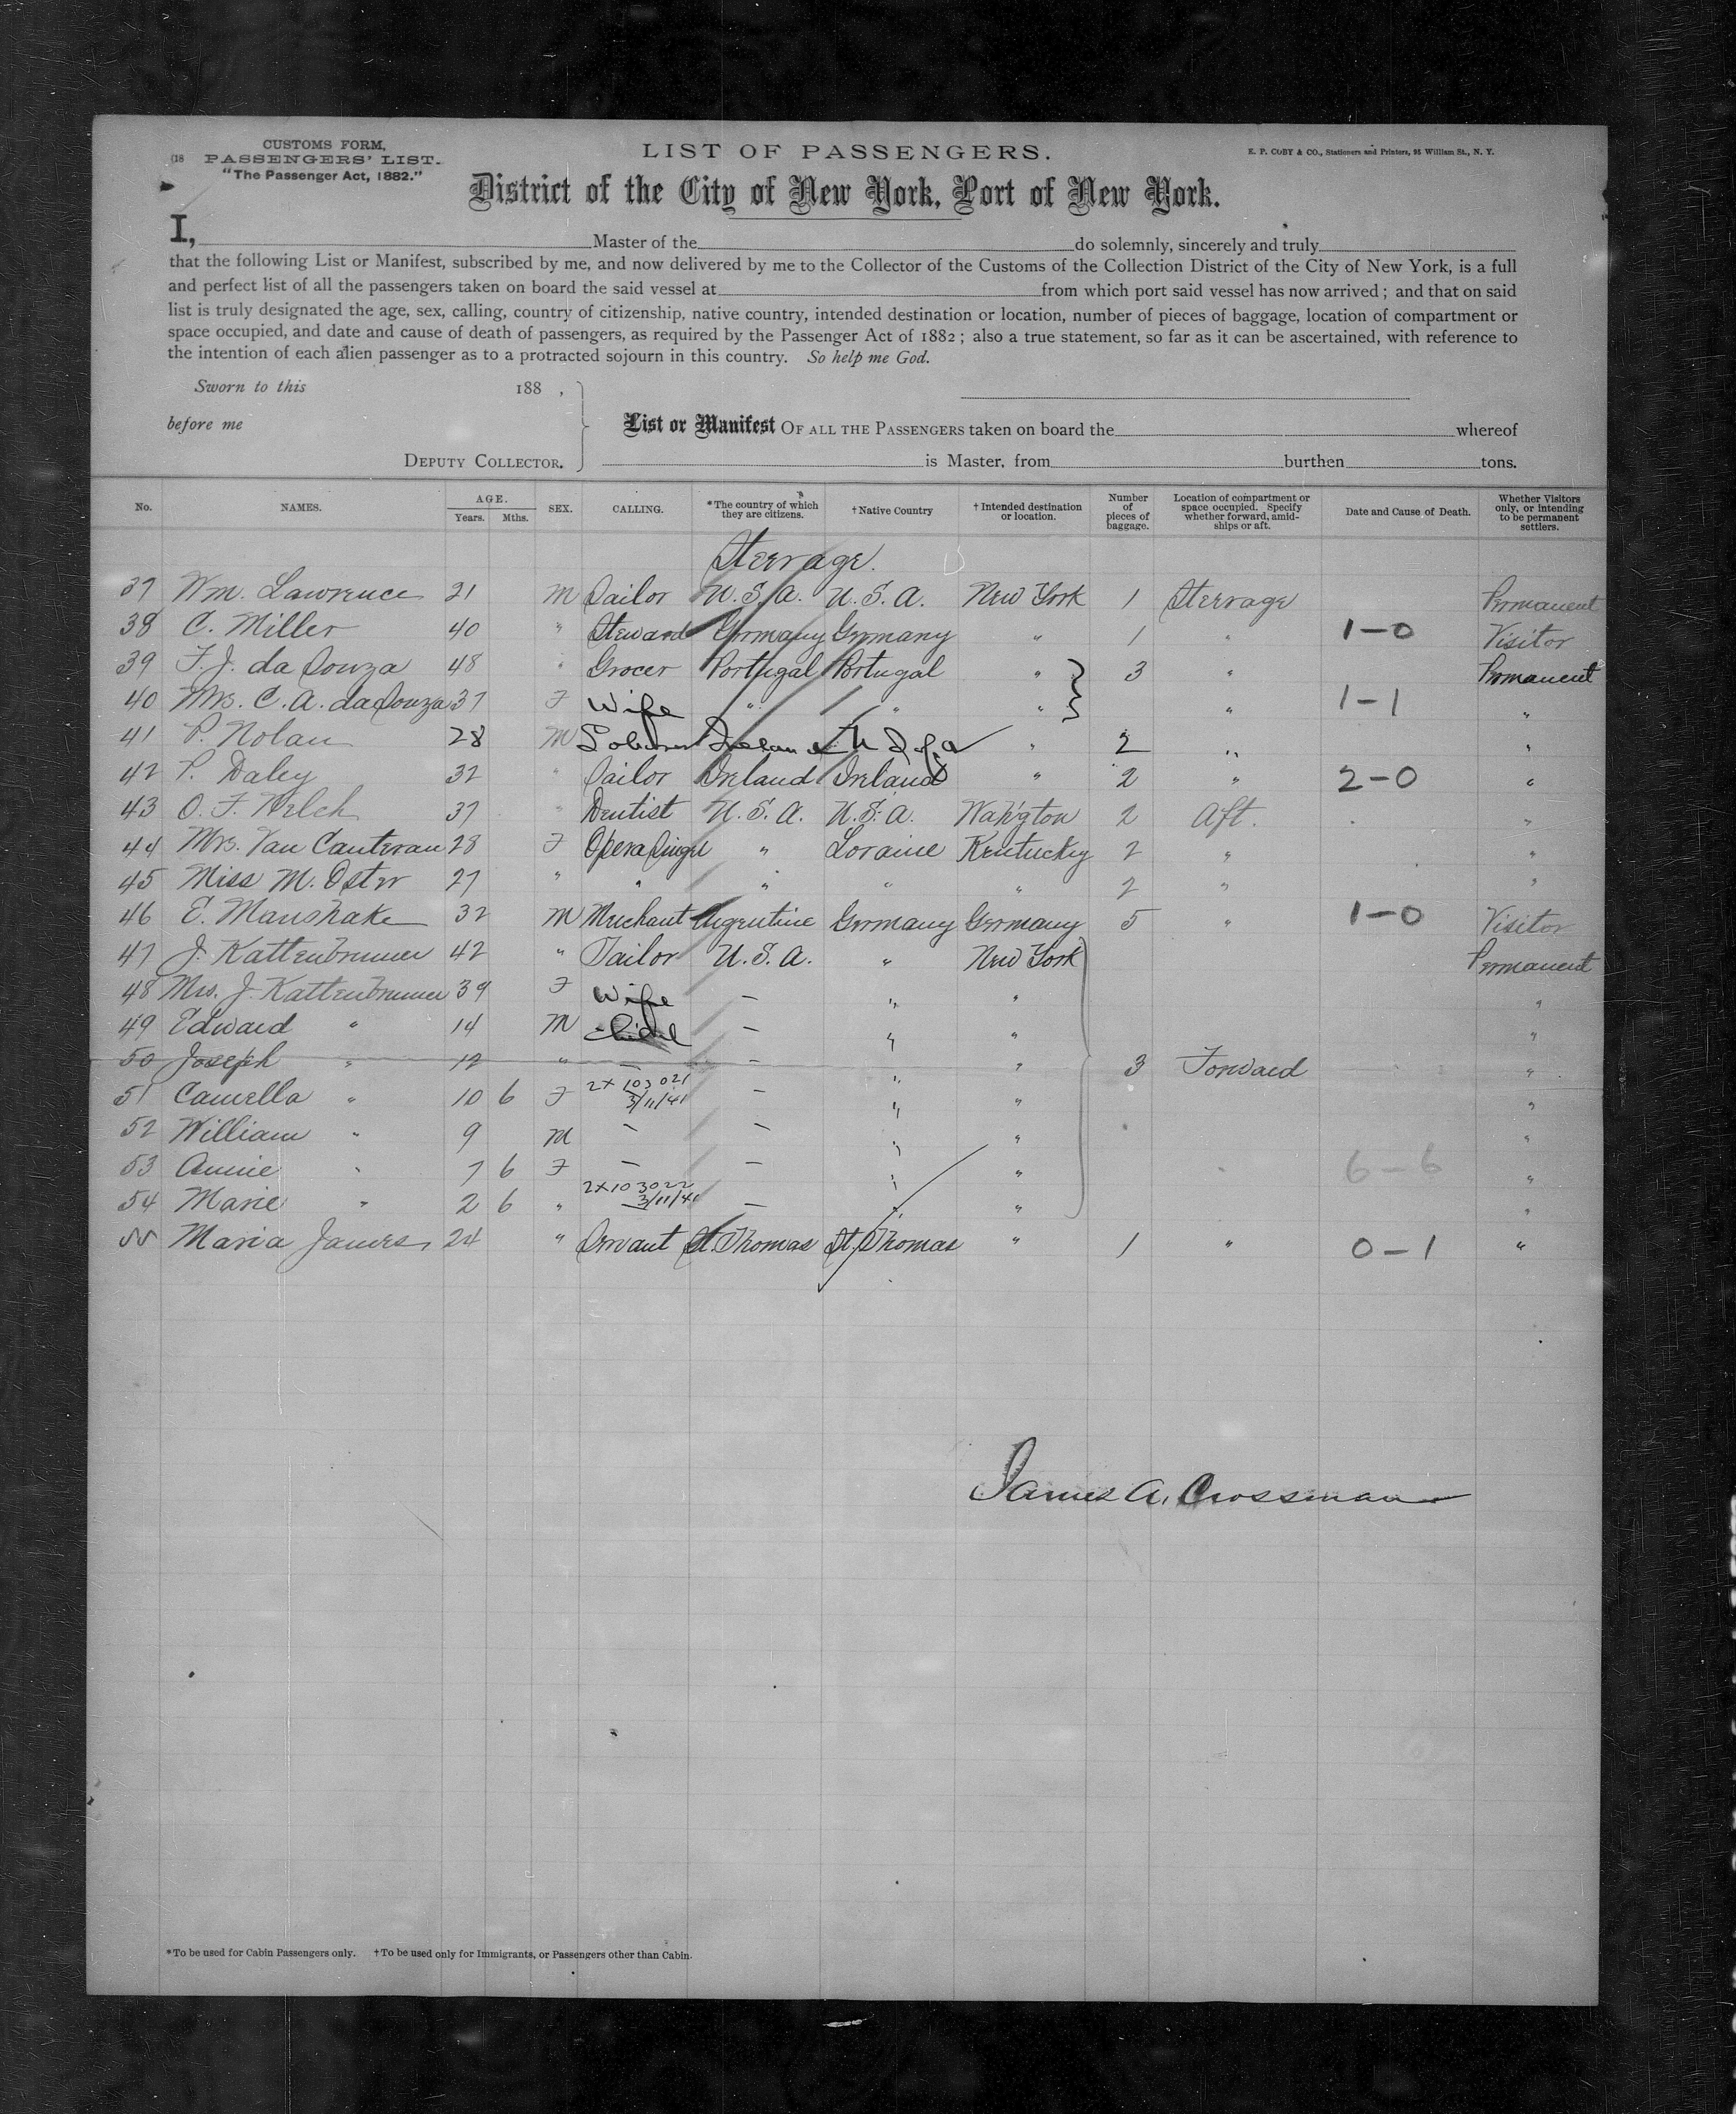 CUSTOMS FORM,
PASSENGERS' LIST.
"The Passenger Act, 1882."
LIST OF PASSENGERS.
E. P. COBY & CO., Stationers and Printers, 95 William St., N. Y.
District of the City of New York, Port of New York.
I, Master of the do solemnly, sincerely and truly
that the following List or Manifest, subscribed by me, and now delivered by me to the Collector of the Customs of the Collection District of the City of New York, is a full
and perfect list of all the passengers taken on board the said vessel at from which port said vessel has now arrived; and that on said
list is truly designated the age, sex, calling, country of citizenship, native country, intended destination or location, number of pieces of baggage, location of compartment or
space occupied, and date and cause of death of passengers, as required by the Passenger Act of 1882; also a true statement, so far as it can be ascertained, with reference to
the intention of each alien passenger as to a protracted sojourn in this country. So help me God.
Sworn to this 188 ,
before me
DEPUTY COLLECTOR.
List or Manifest OF ALL THE PASSENGERS taken on board the whereof
is Master, from burthen tons.
No. NAMES. AGE. Years. Mths. SEX. CALLING. *The country of which they are citizens. †Native Country †Intended destination or location. Number of pieces of baggage. Location of compartment or space occupied. Specify whether forward, amidships or aft. Date and Cause of Death. Whether Visitors only, or intending to be permanent settlers.
Steerage.
37 Wm. Lawrence 21 M Sailor U.S.A. U.S.A. New York 1 Steerage Permanent
38 C. Miller 40 " Steward Germany Germany " 1 " 1-0 Visitor
39 F. J. da Souza 48 " Grocer Portugal Portugal " 3 " Permanent
40 Mrs. C. A. da Souza 37 F Wife " " " " 1-1 "
41 P. Nolan 28 M Ireland U S of a " 2 " "
42 P. Daley 32 " Sailor Ireland Ireland " 2 " 2-0 "
43 O. F. Welch 37 " Dentist U.S.A. U.S.A. 2 Aft. "
44 Mrs. Van Canteran 28 F Opera Singer " Loraine Kentucky 2 " "
45 Miss M. Oster 27 " " " " " 2 " "
46 E. Manshake 32 M Merchant Argentine Germany Germany 5 " 1-0 Visitor
47 J. Kattenbrunner 42 " Tailor U.S.A. " New York Permanent
48 Mrs. J. Kattenbrunner 39 F Wife — " " "
49 Edward " 14 M Child — " " "
50 Joseph " 12 " — — " " 3 Forward "
51 Camella " 10 6 F 2X103021 3/11/41 — " " "
52 William " 9 M — — " " "
53 Annie " 7 6 F — — " " 6-6 "
54 Marie " 2 6 " 2X103022 3/11/41 — " " "
55 Maria James, 24 " Servant St. Thomas St. Thomas " 1 " 0-1 "
James A. Crossman
*To be used for Cabin Passengers only. †To be used only for Immigrants, or Passengers other than Cabin.